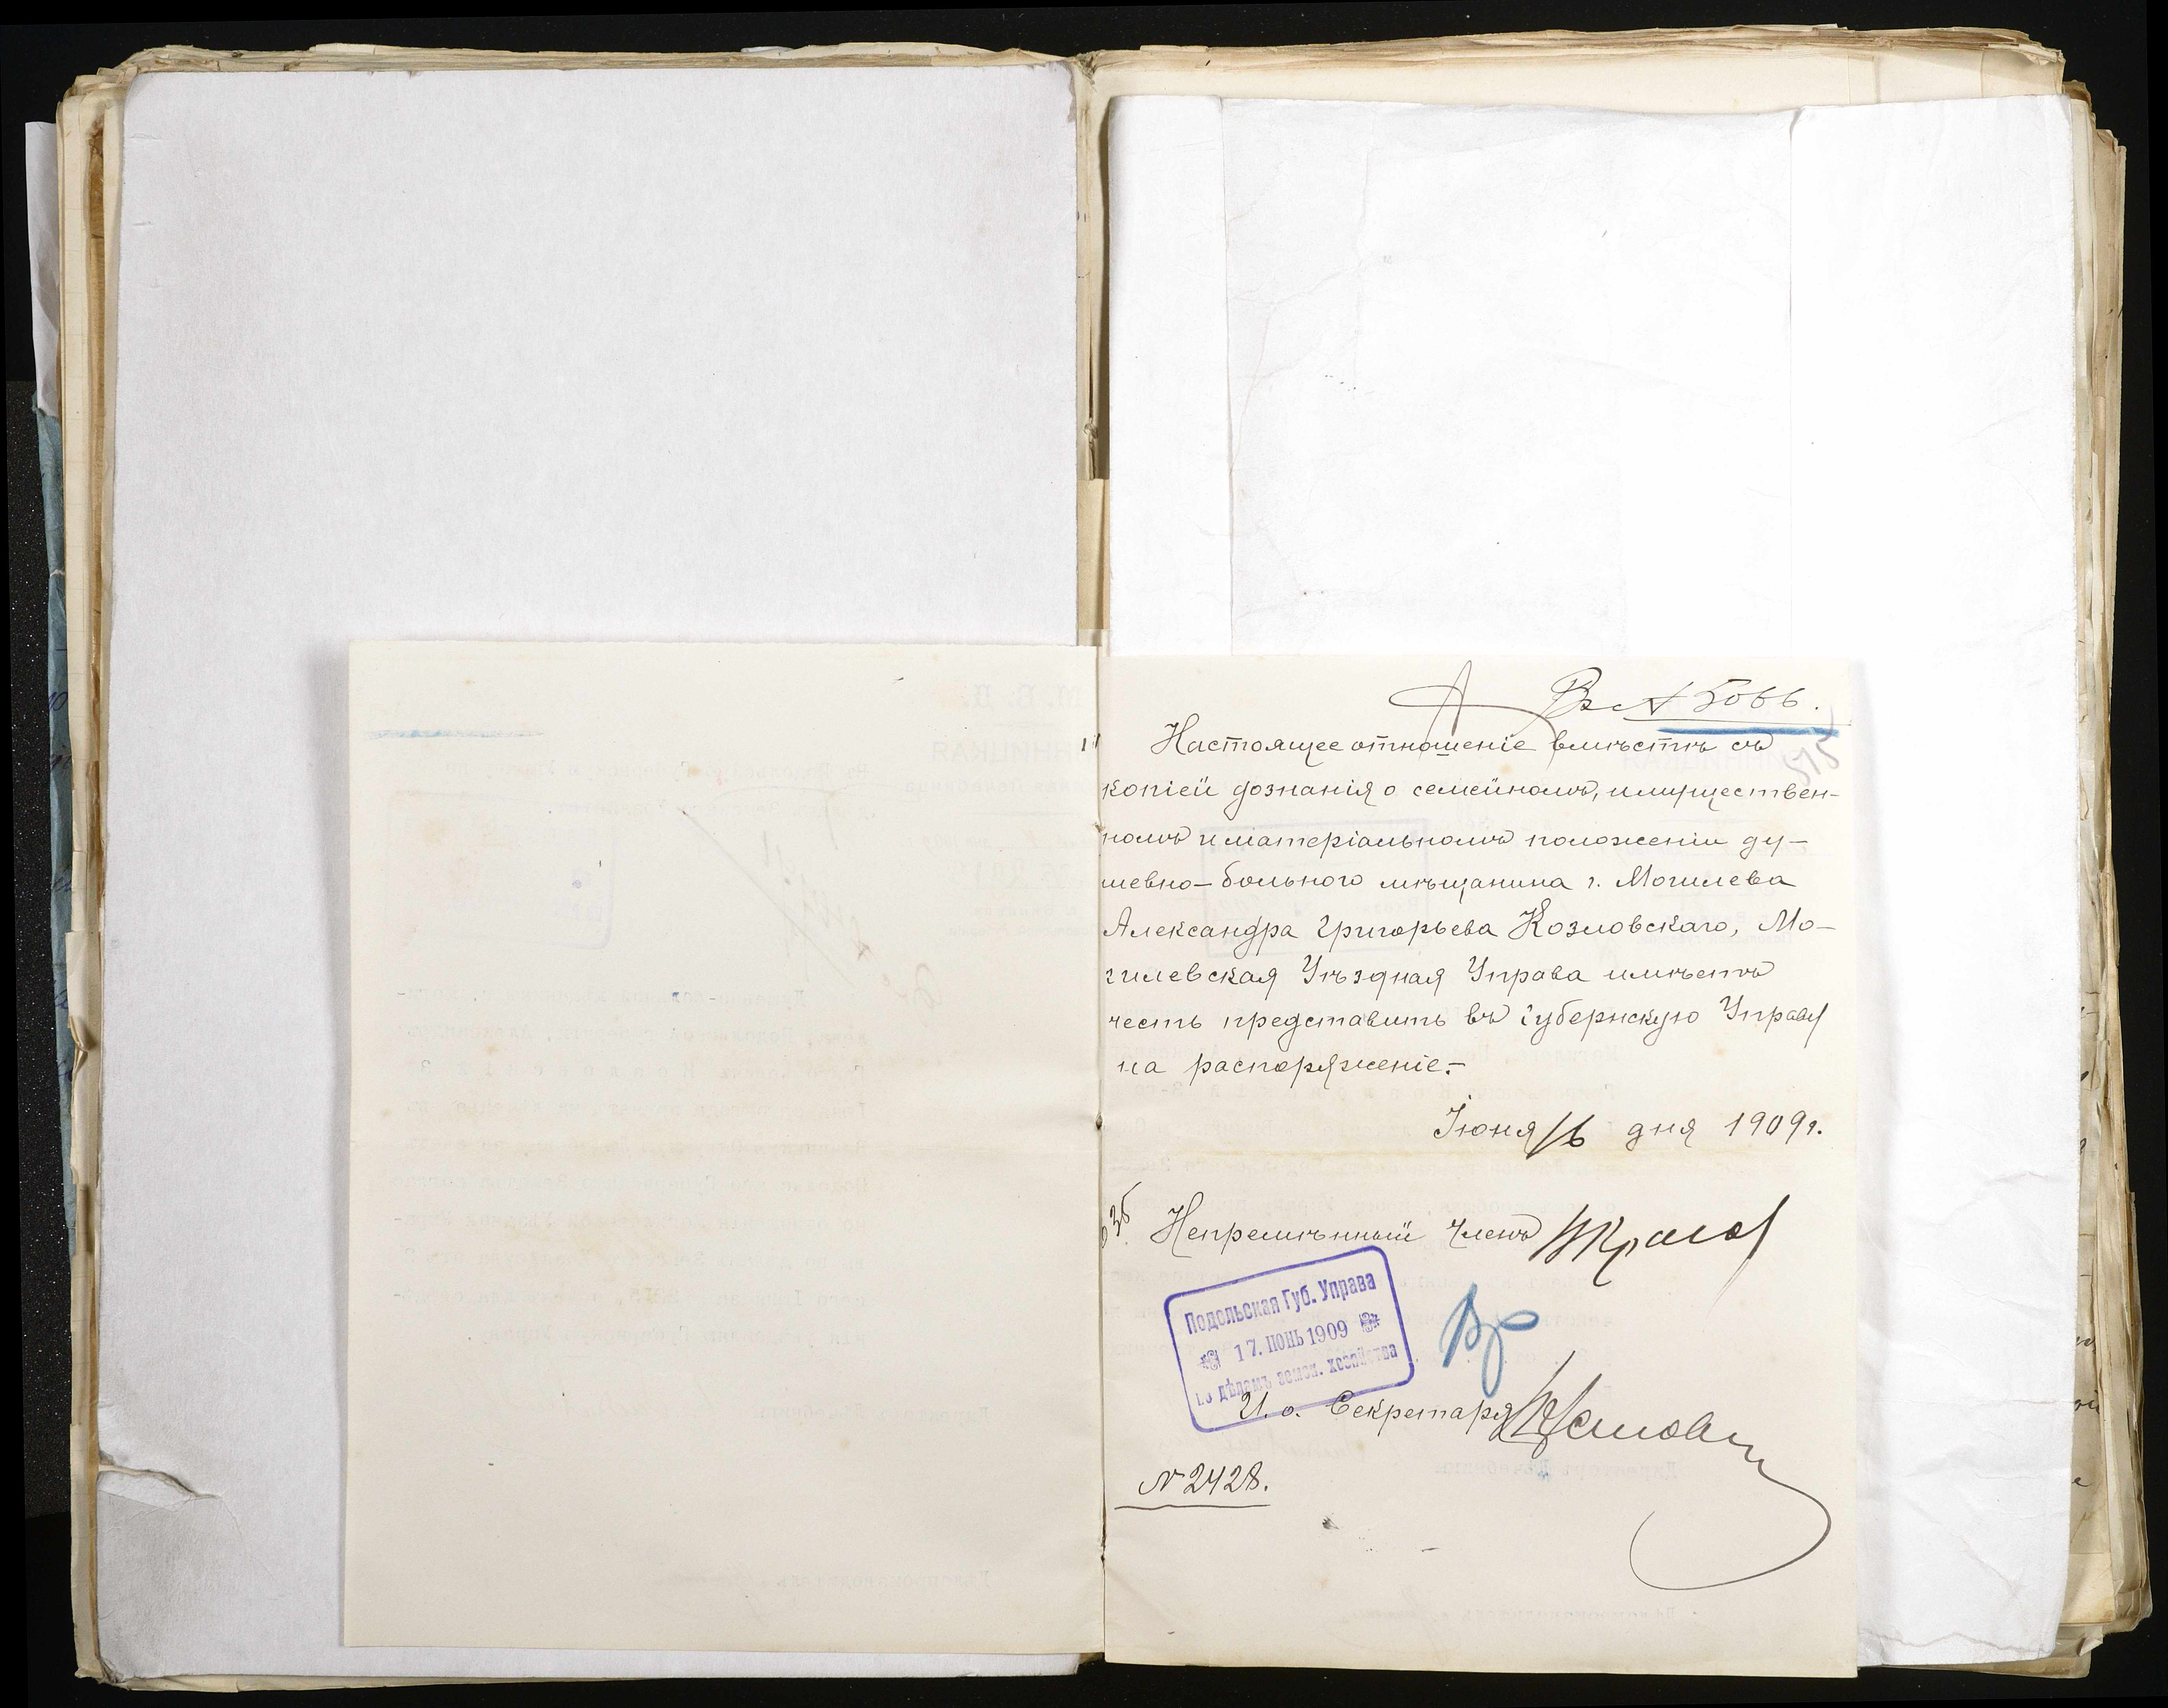 Вх № 5066.
515
Настоящее отношеніе вмѣстѣ съ
копіей дознанія о семейномъ, имуществен-
номъ и матеріальномъ положеніи ду-
шевно-больного мѣщанина г. Могилева
Александра Григорьева Козловскаго, Мо-
гилевская Уѣздная Управа имѣетъ
честь представить въ Губернскую Управу
на распоряженіе.-
Іюня 16 дня 1909 г.
Непремѣнный Членъ
Подольская Губ. Управа
17. ІЮНЬ 1909
по дѣламъ земск. хозяйства
И. о. Секретаря
№ 2428.